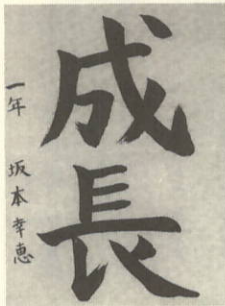 成長
一年 坂本幸恵